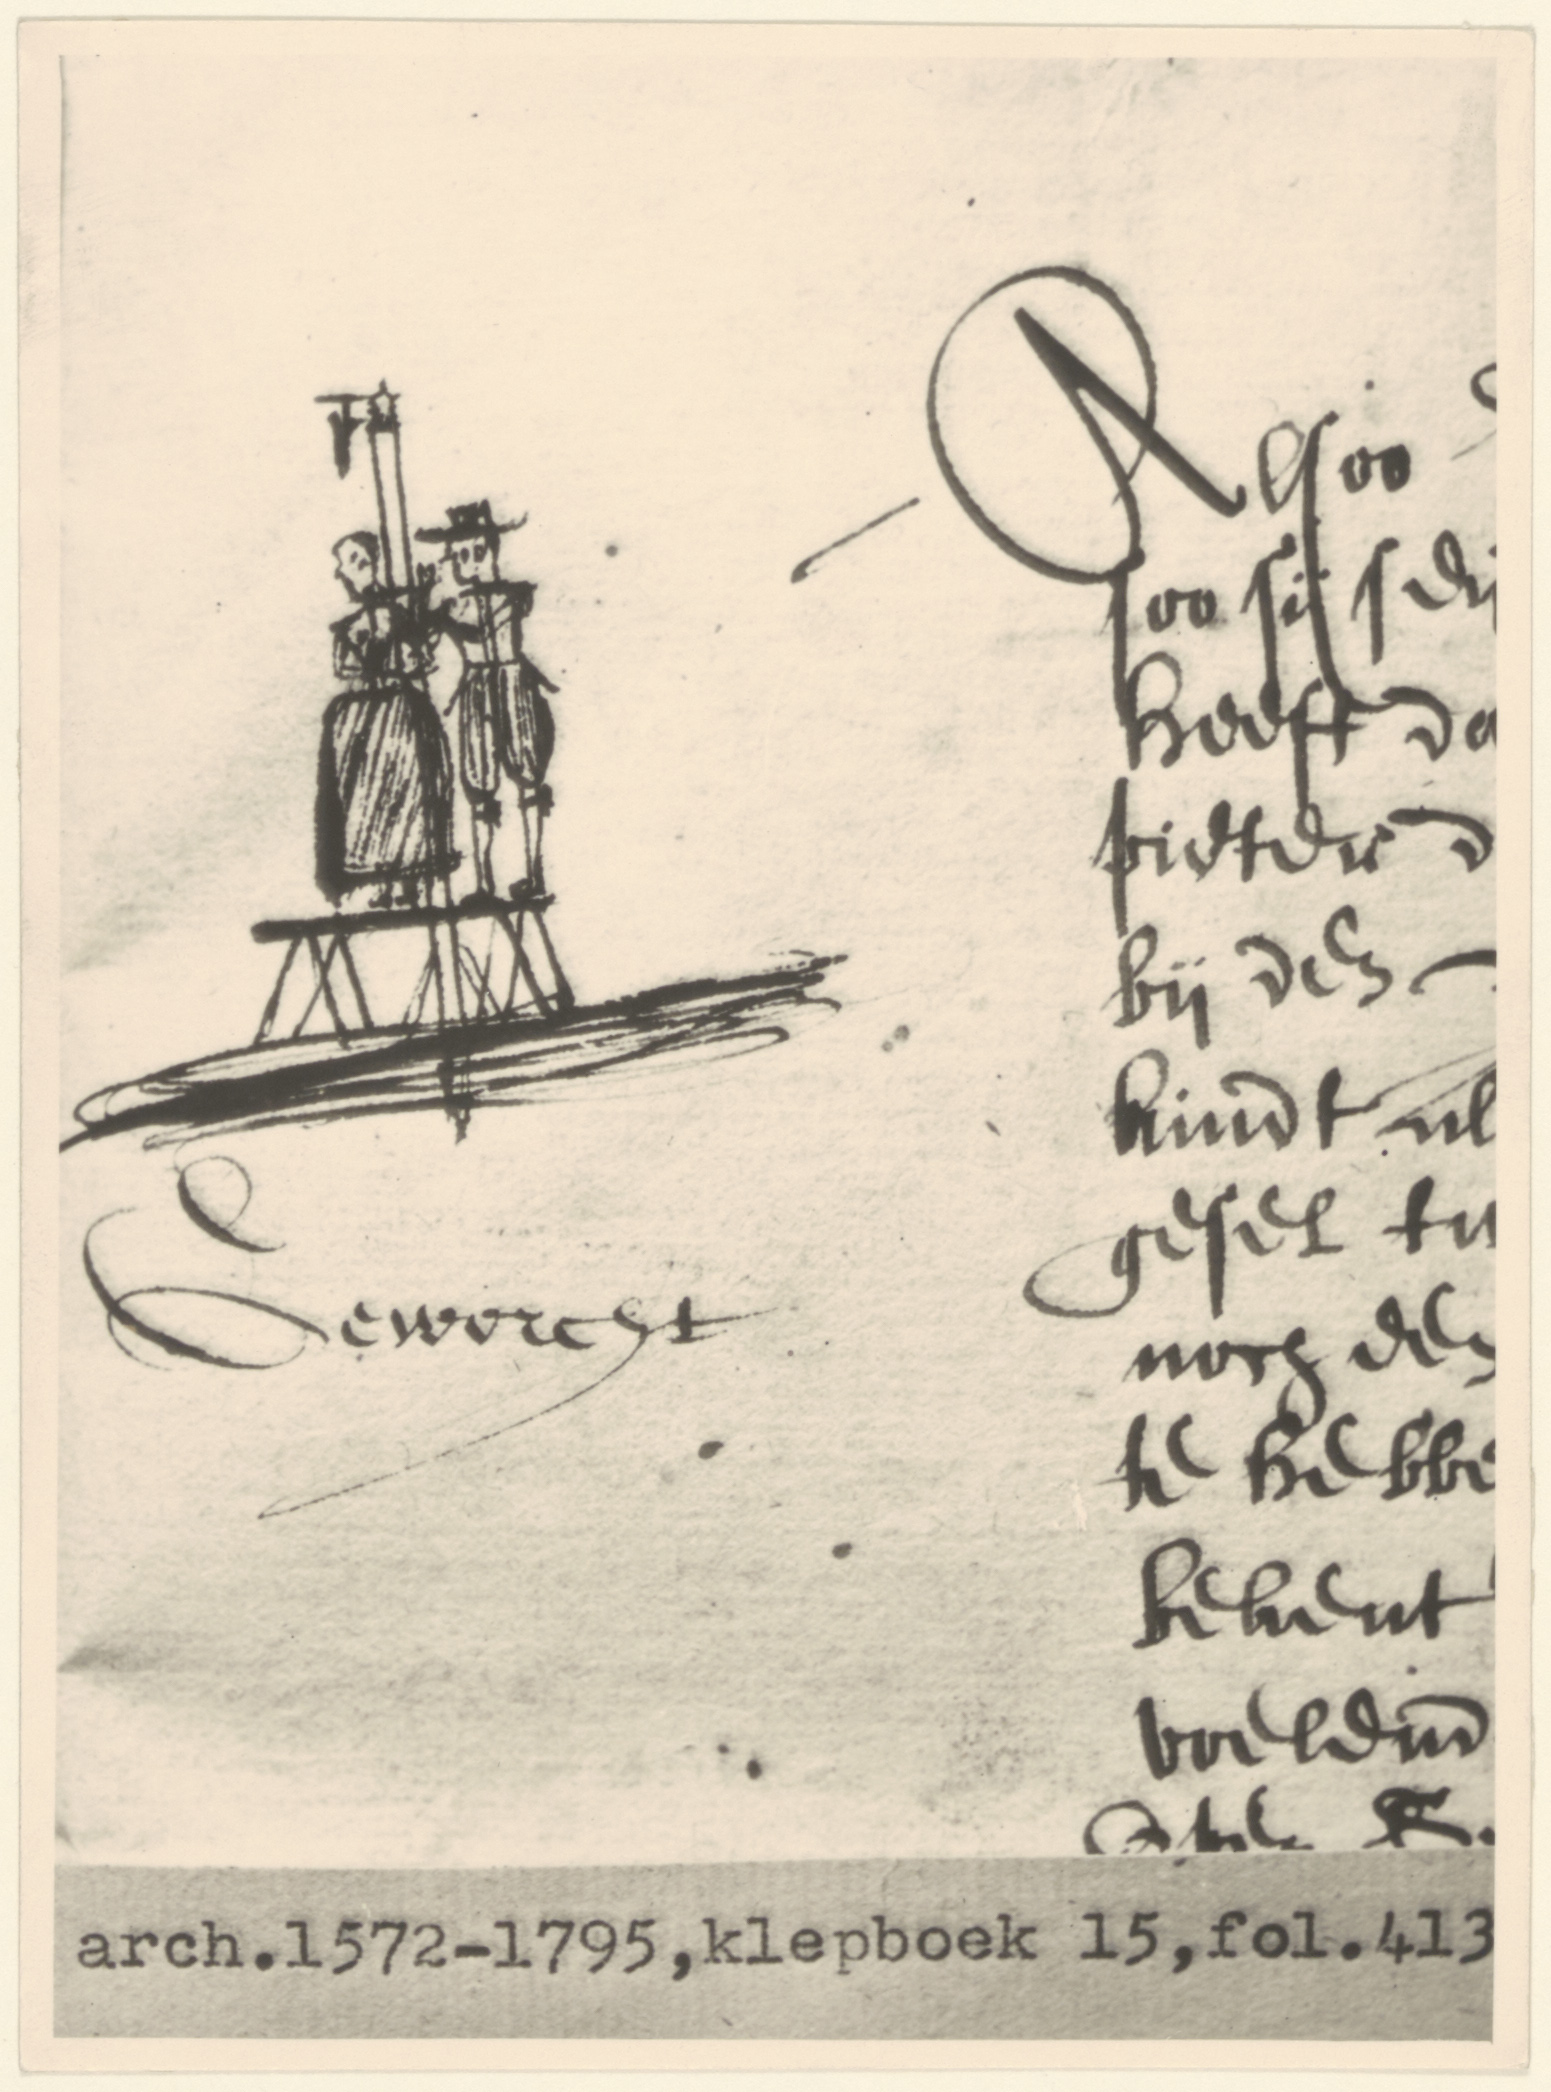 Geworcht
Alsoo
soo sij sedu
heeft da
pieter d
bij den
kindt
gesel tu
noch den
te hebbe
bekent
voeldin
arch.1572-1795,klepboek 15,fol.413